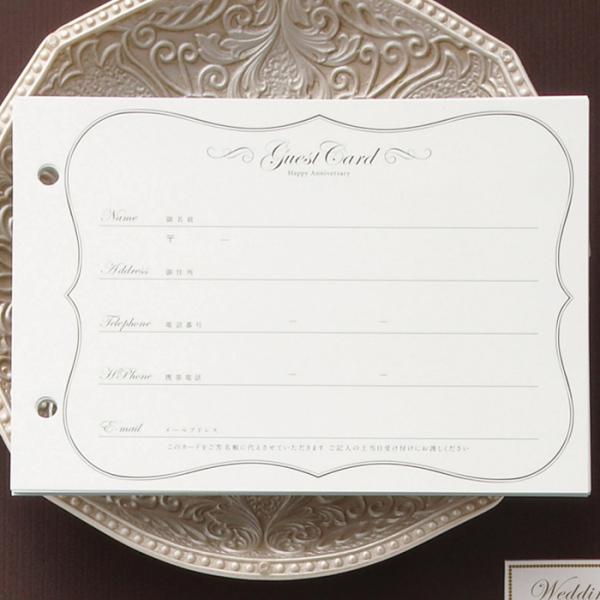 Guest Card
Happy Anniversary
Name 御名前
〒 —
Address 御住所
Telephone 電話番号 — —
H.Phone 携帯電話 — —
E-mail メールアドレス
このカードをご芳名帳に代えさせていただきます ご記入の上当日受け付けにお渡しください